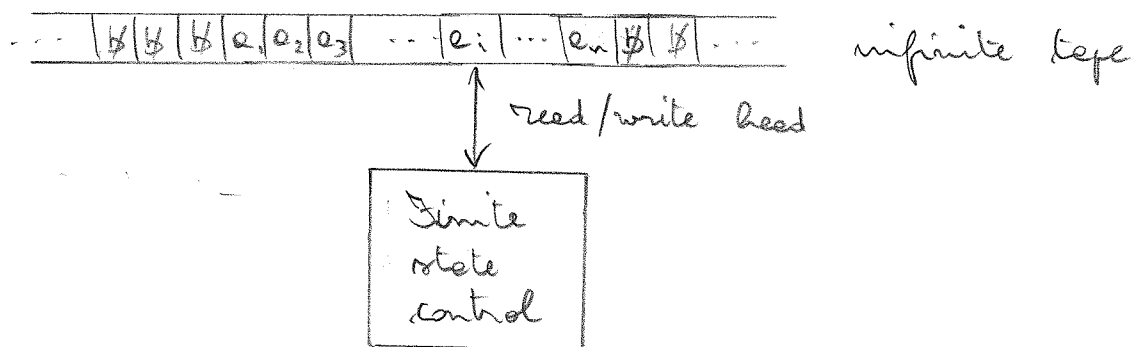 ... | ␢ | ␢ | ␢ | a₁ | a₂ | a₃ | ... | aᵢ | ... | aₙ | ␢ | ␢ | ... infinite tape
read/write head
Finite
state
control